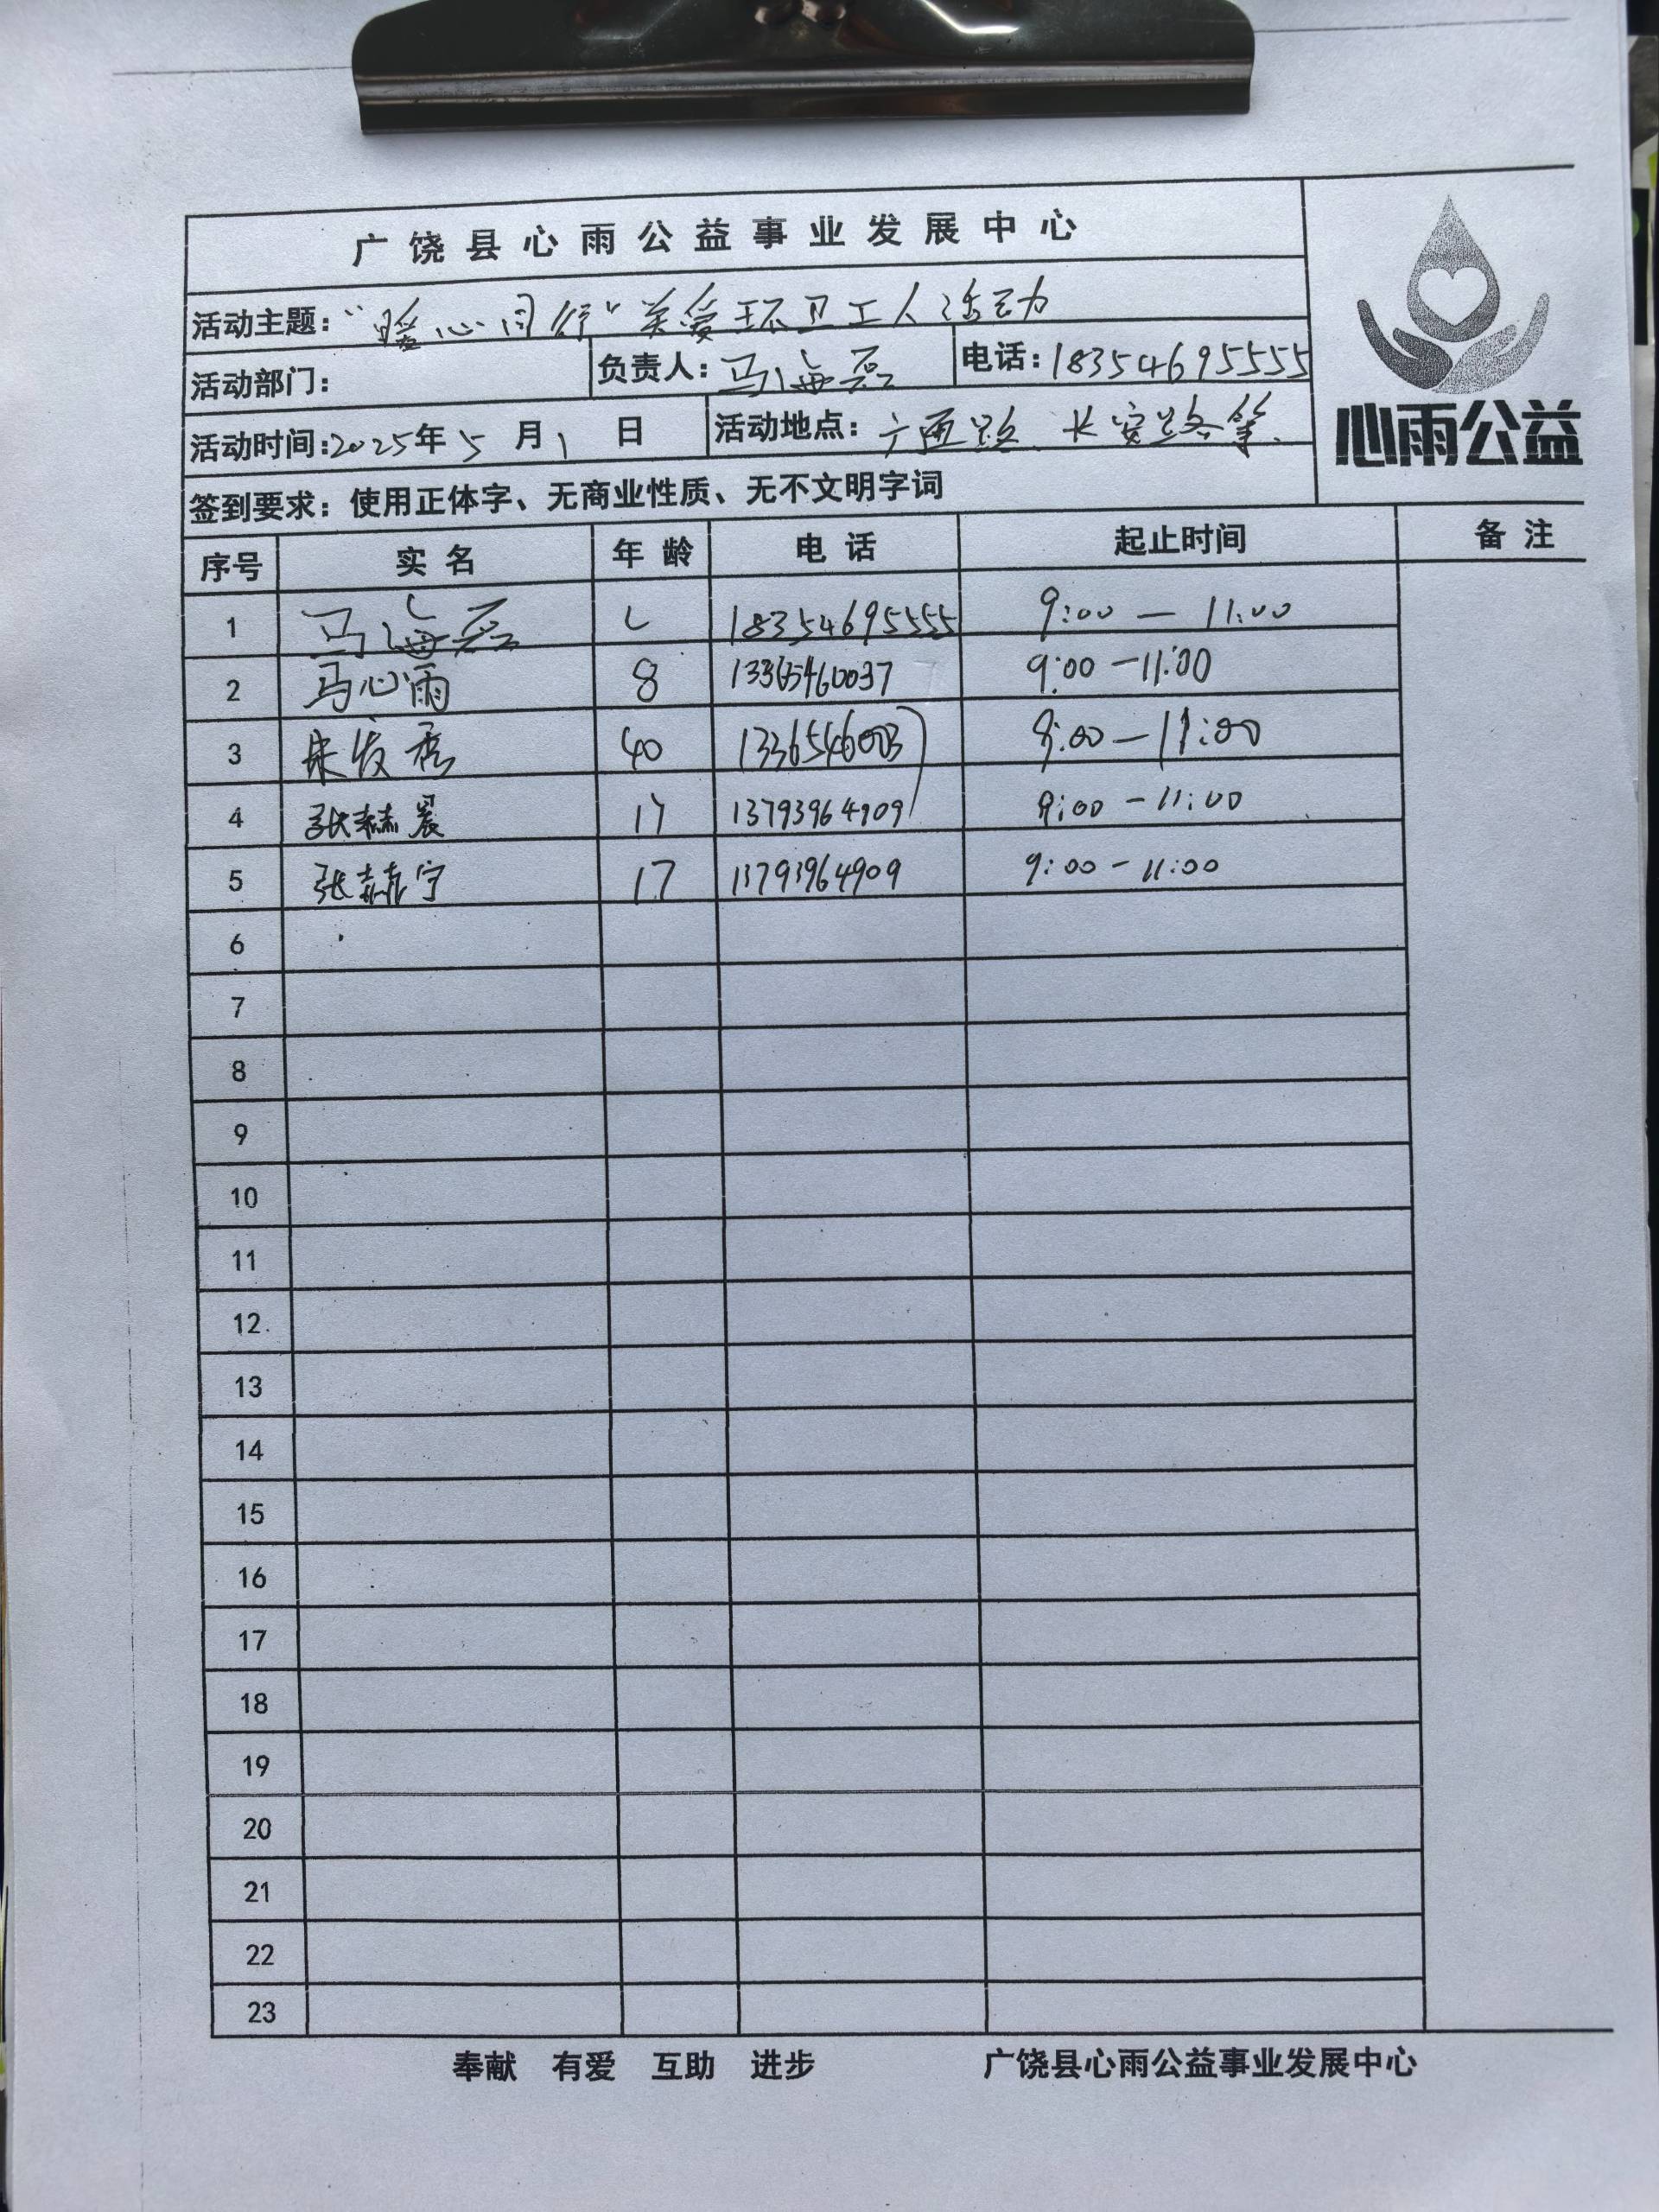 广饶县心雨公益事业发展中心
活动主题：“暖心同行”关爱环卫工人活动
活动部门： 负责人：马海磊 电话：18354695555
活动时间：2025年5月1日 活动地点：广通路、长安路等
心雨公益
签到要求：使用正体字、无商业性质、无不文明字词
序号 实名 年龄 电话 起止时间 备注
1 马海磊 18354695555 9:00—11:00
2 马心雨 8 13365460037 9:00-11:00
3 40 9:00—11:00
4 张赫晨 17 13793964909 9:00-11:00
5 张赫宁 17 13793964909 9:00-11:00
6
7
8
9
10
11
12
13
14
15
16
17
18
19
20
21
22
23
奉献 有爱 互助 进步 广饶县心雨公益事业发展中心